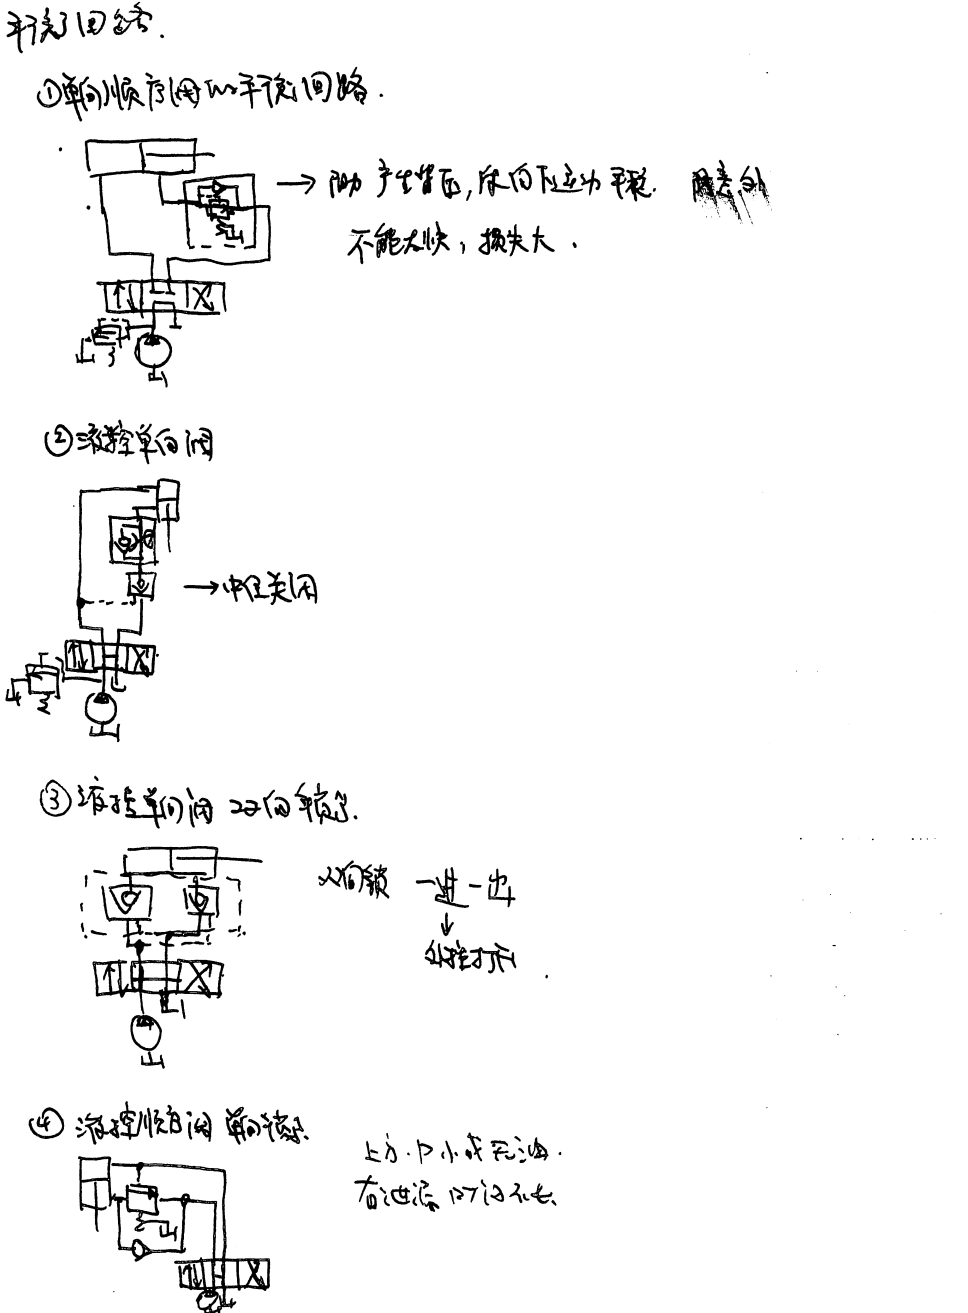 平衡回路.
①单向顺序阀的平衡回路.
→ 产生背压,使向下运动平稳.
不能太快,损失大.
②液控单向阀
→中位关闭
③液控单向阀 双向锁紧.
双向锁 一进一出
↓
外控打开
④液控顺序阀 单向锁紧.
上方.P小或无油.
有泄漏 时间不长